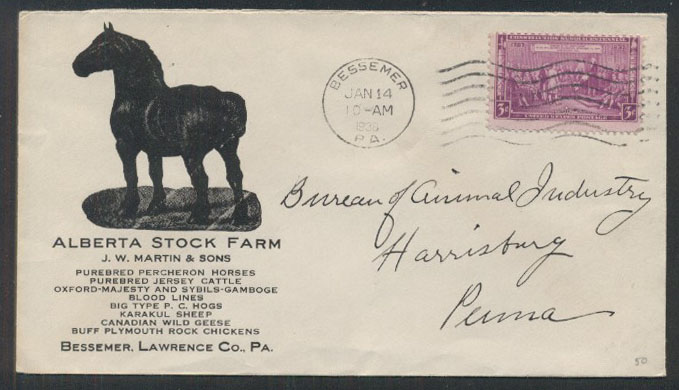 ALBERTA STOCK FARM
J. W. MARTIN & SONS
PUREBRED PERCHERON HORSES
PUREBRED JERSEY CATTLE
OXFORD-MAJESTY AND SYBILS-GAMBOGE
BLOOD LINES
BIG TYPE P. C. HOGS
KARAKUL SHEEP
CANADIAN WILD GEESE
BUFF PLYMOUTH ROCK CHICKENS
BESSEMER, LAWRENCE CO., PA.
BESSEMER
JAN 14
10-AM
PA.
3¢ 3¢
UNITED STATES POSTAGE
Bureau of Animal Industry
Harrisburg
Penna
50